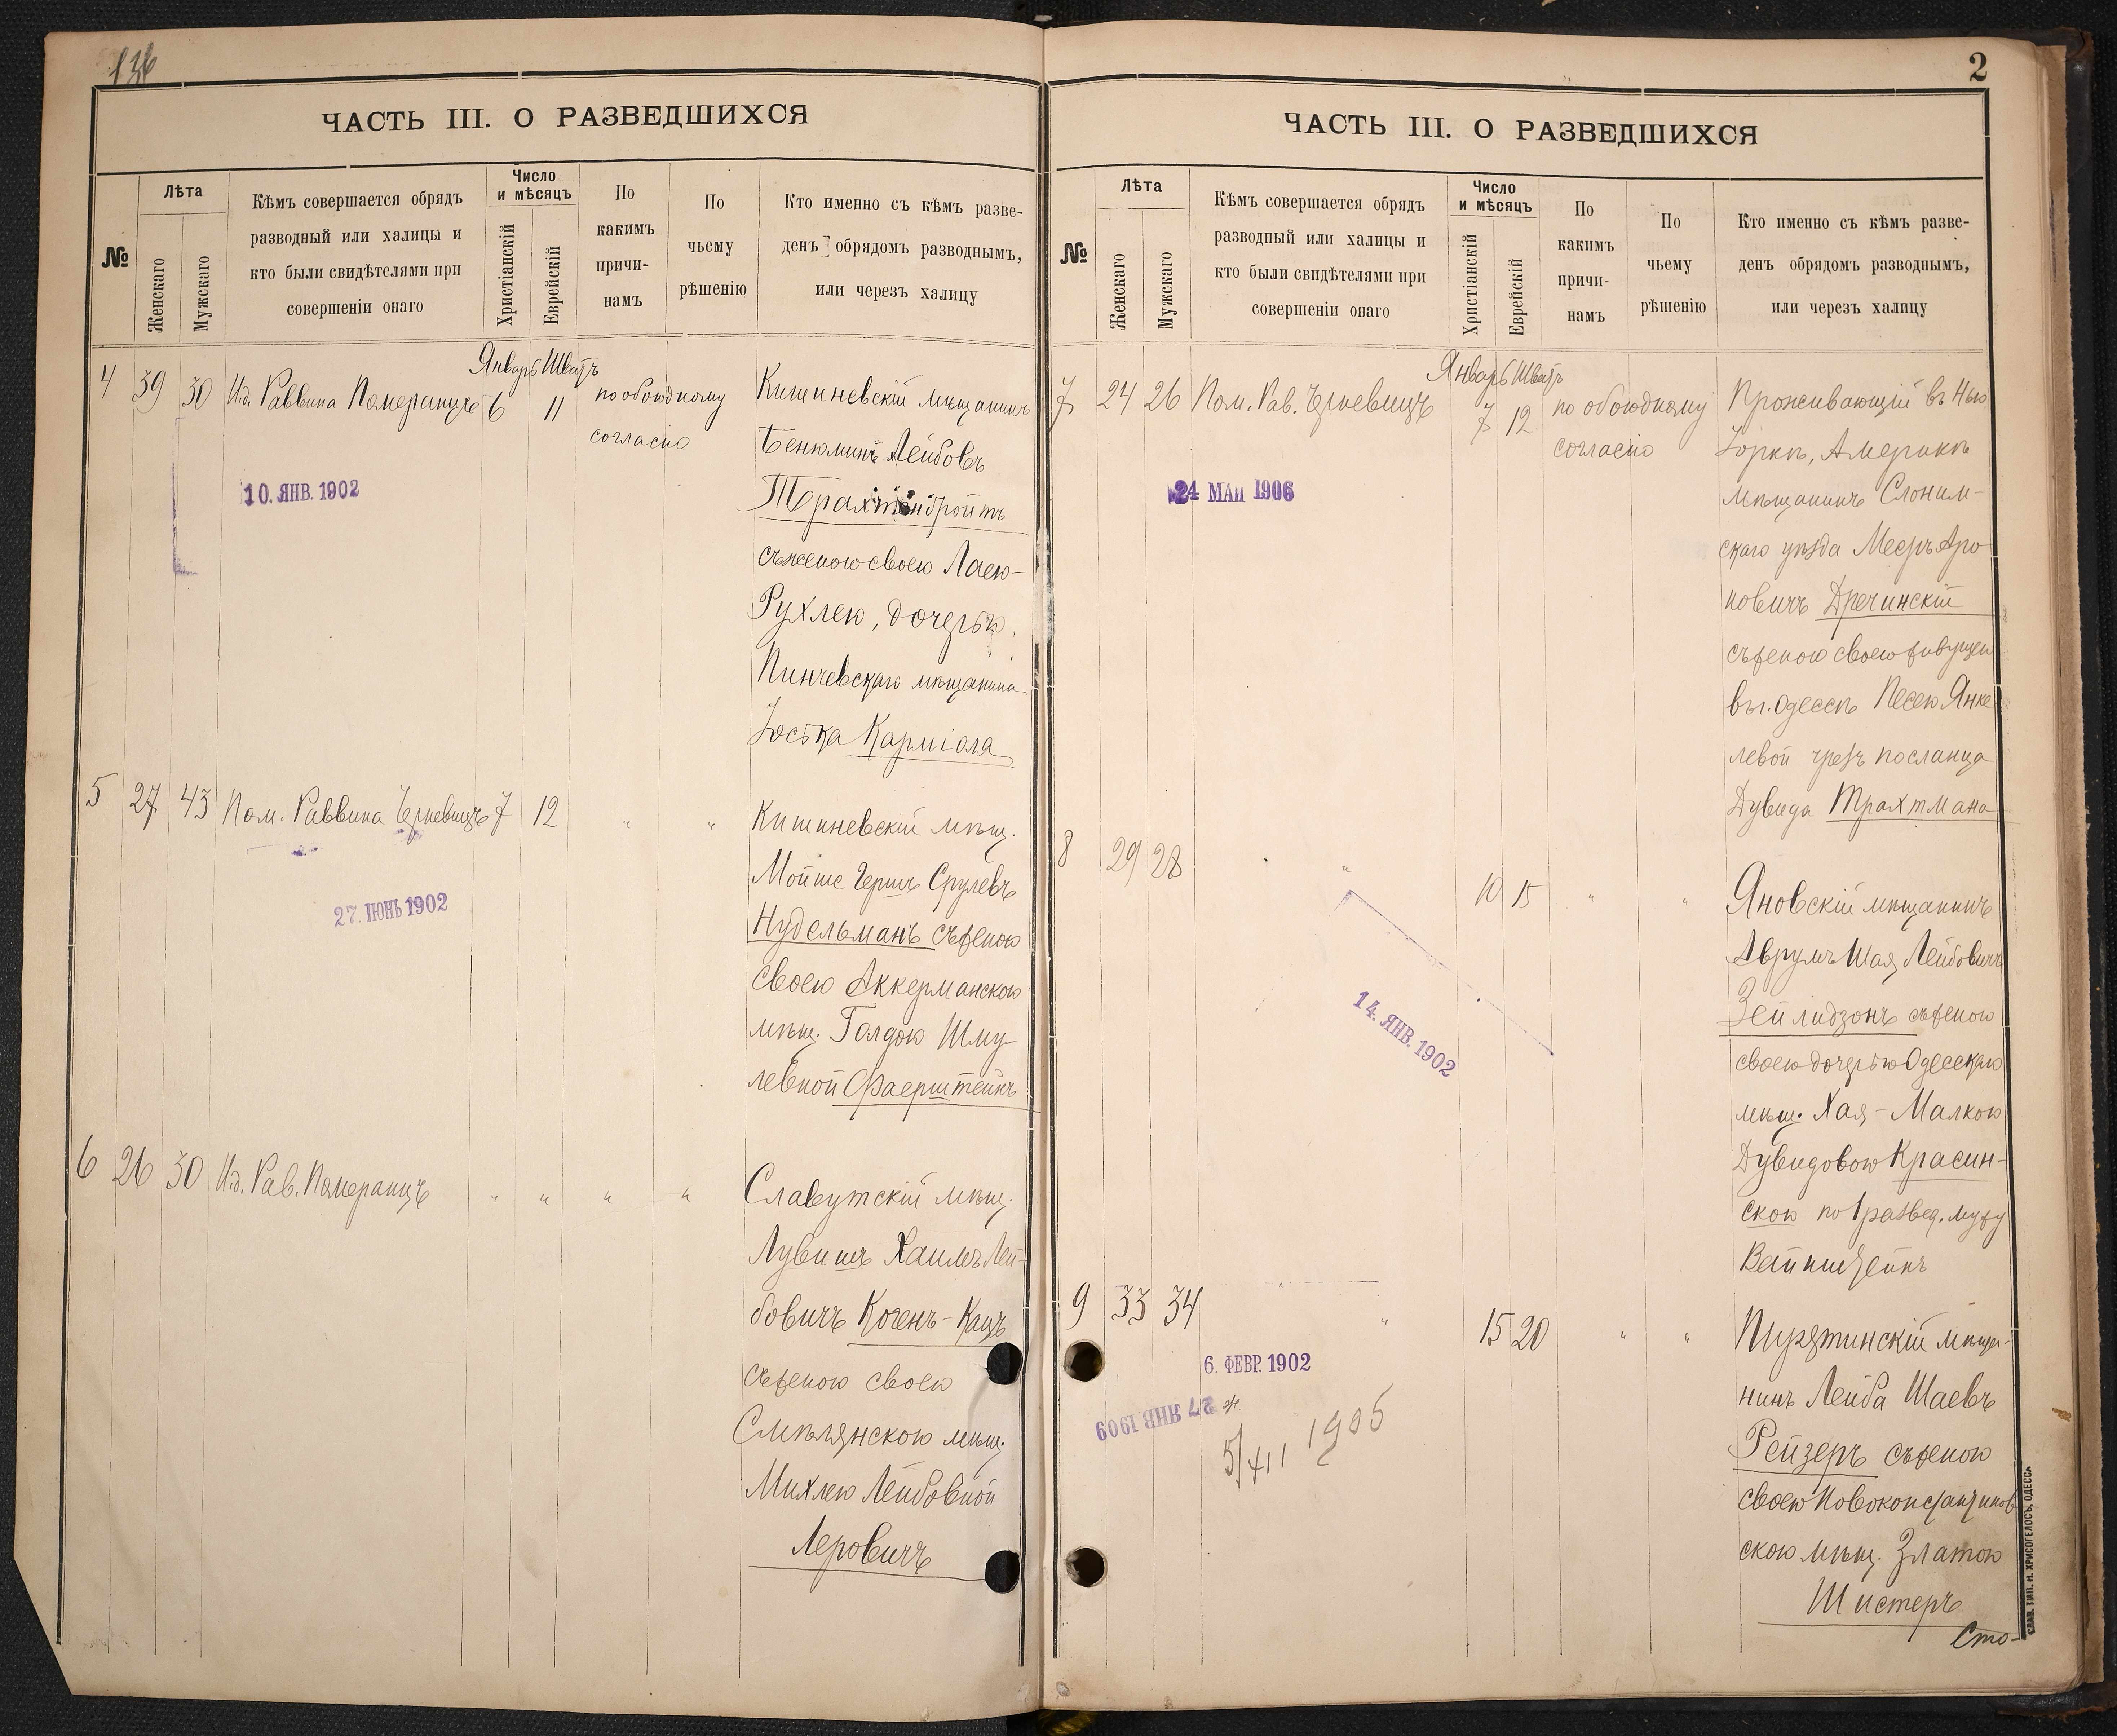 136
ЧАСТЬ III. О РАЗВЕДШИХСЯ
№
Лѣта
Женскаго
Мужскаго
Кѣмъ совершается обрядъ
разводный или халицы и
кто были свидѣтелями при
совершеніи онаго
Число
и мѣсяцъ
Христіанскій
Еврейскій
По
какимъ
причи-
намъ
По
чьему
рѣшенію
Кто именно съ кѣмъ разве-
денъ обрядомъ разводнымъ,
или черезъ халицу
Январь Шватъ
4 39 30 И.д. Раввина Померанцъ 6 11 по обоюдному
согласію
10. ЯНВ. 1902
Кишиневскій мѣщанинъ
Бенюминъ Лейбовъ
Трахтенбройтъ
съ женою своею Лаею-
Рухлею, дочерью
Пинчевскаго мѣщанина
Юсъка Карміола
5 27 43 Пом. Раввина Черневицъ 7 12 " "
27. ІЮНЬ 1902
Кишиневскій мѣщ.
Мойше Герш Срулевъ
Нудельманъ съ женою
своею Аккерманскою
мѣщ. Голдою Шму-
левной Фаерштейнъ
6 26 30 И.д. Рав. Померанцъ " " " "
Славутскій мѣщ.
Лувишъ Хаимъ Лей-
бовичъ Когенъ-Кацъ
съ женою своею
Смѣлянскою мѣщ.
Михлею Лейбовной
Леровичъ
2
ЧАСТЬ III. О РАЗВЕДШИХСЯ
№
Лѣта
Женскаго
Мужскаго
Кѣмъ совершается обрядъ
разводный или халицы и
кто были свидѣтелями при
совершеніи онаго
Число
и мѣсяцъ
Христіанскій
Еврейскій
По
какимъ
причи-
намъ
По
чьему
рѣшенію
Кто именно съ кѣмъ разве-
денъ обрядомъ разводнымъ,
или черезъ халицу
Январь Шватъ
7 24 26 Пом. Рав. Черневицъ 7 12 по обоюдному
согласію
24 МАЯ 1906
Проживающій въ Нью
Іоркѣ, Америкѣ
мѣщанинъ Слоним-
скаго уѣзда Мееръ Аро
новичъ Дречинскій
съ женою своею живущею
въ г. Одессѣ Песею Янке
левой чрезъ посланца
Дувида Трахтмана
8 29 28 " 10 15 " "
14. ЯНВ. 1902
Яновскій мѣщанинъ
Аврумъ Шая Лейбовичъ
Зейлидзонъ съ женою
своею дочерью Одесскаго
мѣщ. Хая-Малкою
Дувидовою Красин-
скою по 1 развед. мужу
Вайнштейнъ
9 33 34 " 15 20 " "
6. ФЕВР. 1902
27 ЯНВ 1909
5/XII 1905
Пирятинскій мѣща-
нинъ Лейба Шаевъ
Рейзеръ съ женою
своею Новоконстантинов
скою мѣщ. Златою
Шистеръ
Сто-
СЛАВ. ТИП. Н. ХРИСОГЕЛОСЪ, ОДЕССА